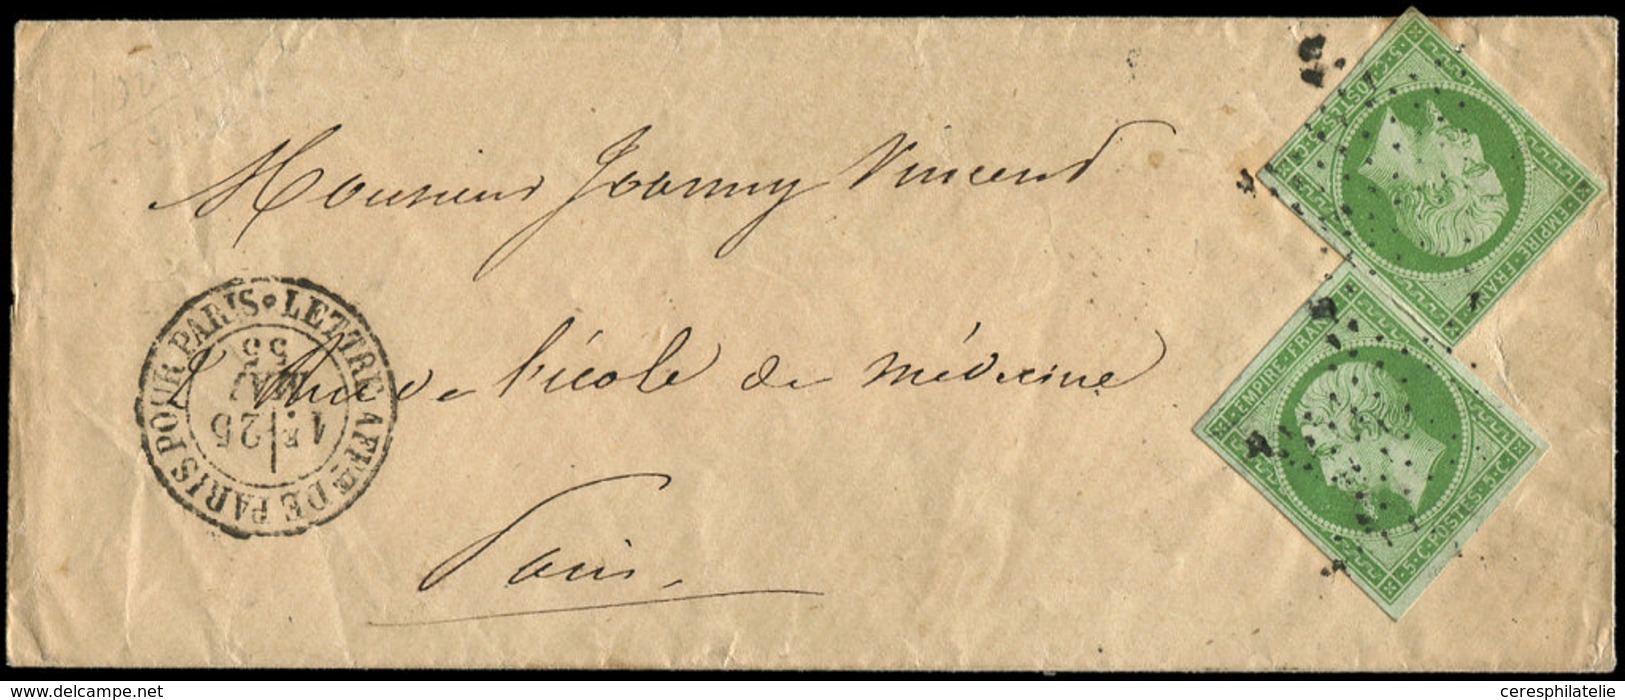 Monsieur Joanny Vincend
2 Rue de l'école de médecine
Paris
LETTRE AFFie DE PARIS POUR PARIS
1E
25
55
5.C.POSTES.5.C.
EMPIRE·FRANC
EMPIRE·FRAN
5.C.POSTES.5.C.
www.delcampe.net
ceresphilatelie